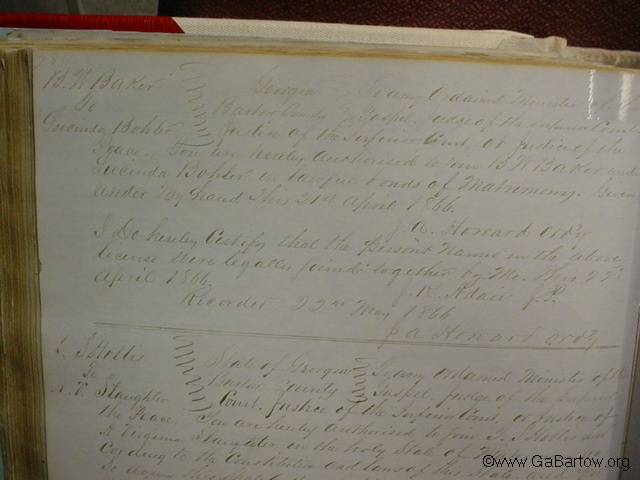 B. W. Baker Georgia To any Ordained Minister of the
To Bartow County Gospel, judge of the Inferior Court
Lucinda Bohler Justice of the Inferior Court, or justice of the
Peace. You are hereby authorised to join B W Baker and
Lucinda Bohler in lawful bonds of Matrimony. Given
under my hand this 21st April 1866.
J. A. Howard Ordy
I Do hereby Certify that the persons Names in the above
license were legally joined together by Me. this 22d
April 1866. J. R. Adair J. P.
Recorded 22nd May 1866
J A Howard Ordy
L. J. Hollis State of Georgia To any Ordained Minister of the
To Bartow County Gospel, judge of the
A. V. Slaughter Court, Justice of the Inferior Court, or justice of
the Peace. You are hereby authorised to join
A Virginia Slaughter in the holy State of
Cording to the Constitution and laws of this State
So doing this
©www.GaBartow.org